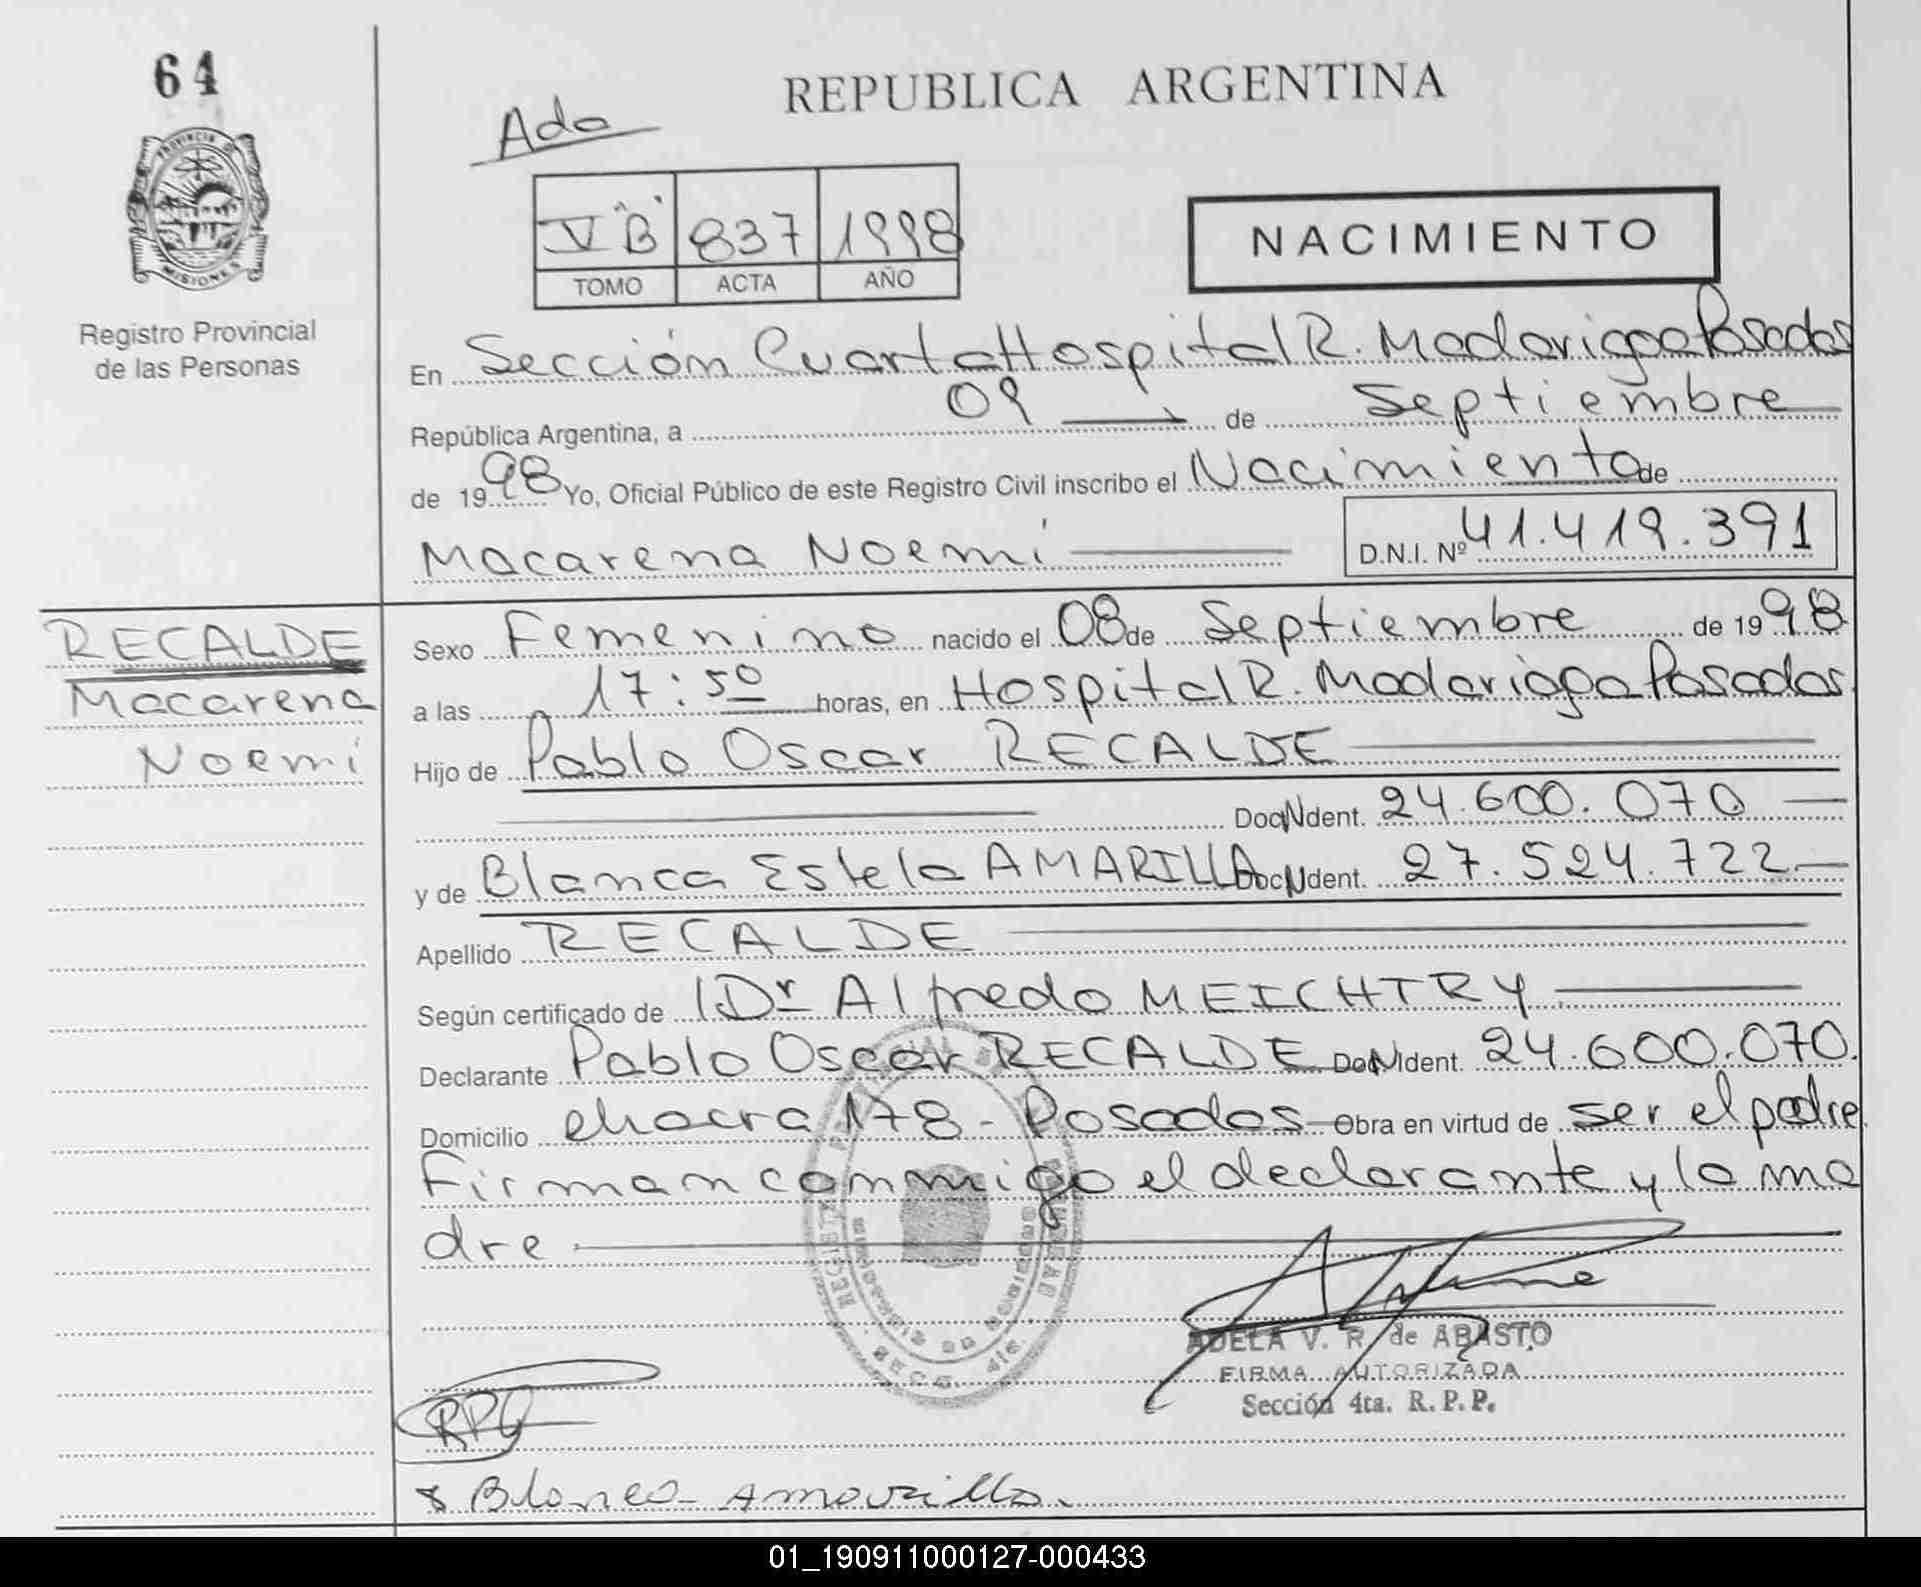 64
REPUBLICA ARGENTINA
Ada
V "B" 837 1998
TOMO ACTA AÑO
NACIMIENTO
PROVINCIA DE MISIONES
Registro Provincial
de las Personas
En Sección Cuarta Hospital R. Madariaga Posadas
República Argentina, a 09 de Septiembre
de 1998 Yo, Oficial Público de este Registro Civil inscribo el Nacimiento de
Macarena Noemí D.N.I. Nº 41.419.391
RECALDE
Macarena
Noemí
Sexo Femenino nacido el 08 de Septiembre de 1998
a las 17:50 horas, en Hospital R. Madariaga Posadas
Hijo de Pablo Oscar RECALDE
Doc N Ident. 24.600.070
y de Blanca Estela AMARILLA Doc N Ident. 27.524.722
Apellido RECALDE
Según certificado de Dr Alfredo MEICHTRY
Declarante Pablo Oscar RECALDE Doc N Ident. 24.600.070.
Domicilio chacra 178 - Posadas Obra en virtud de ser el padre
Firman conmigo el declarante y la ma
dre
ADELA V. R. de ABASTO
FIRMA AUTORIZADA
Sección 4ta. R.P.P.
Blanca Amarilla.
01_190911000127-000433